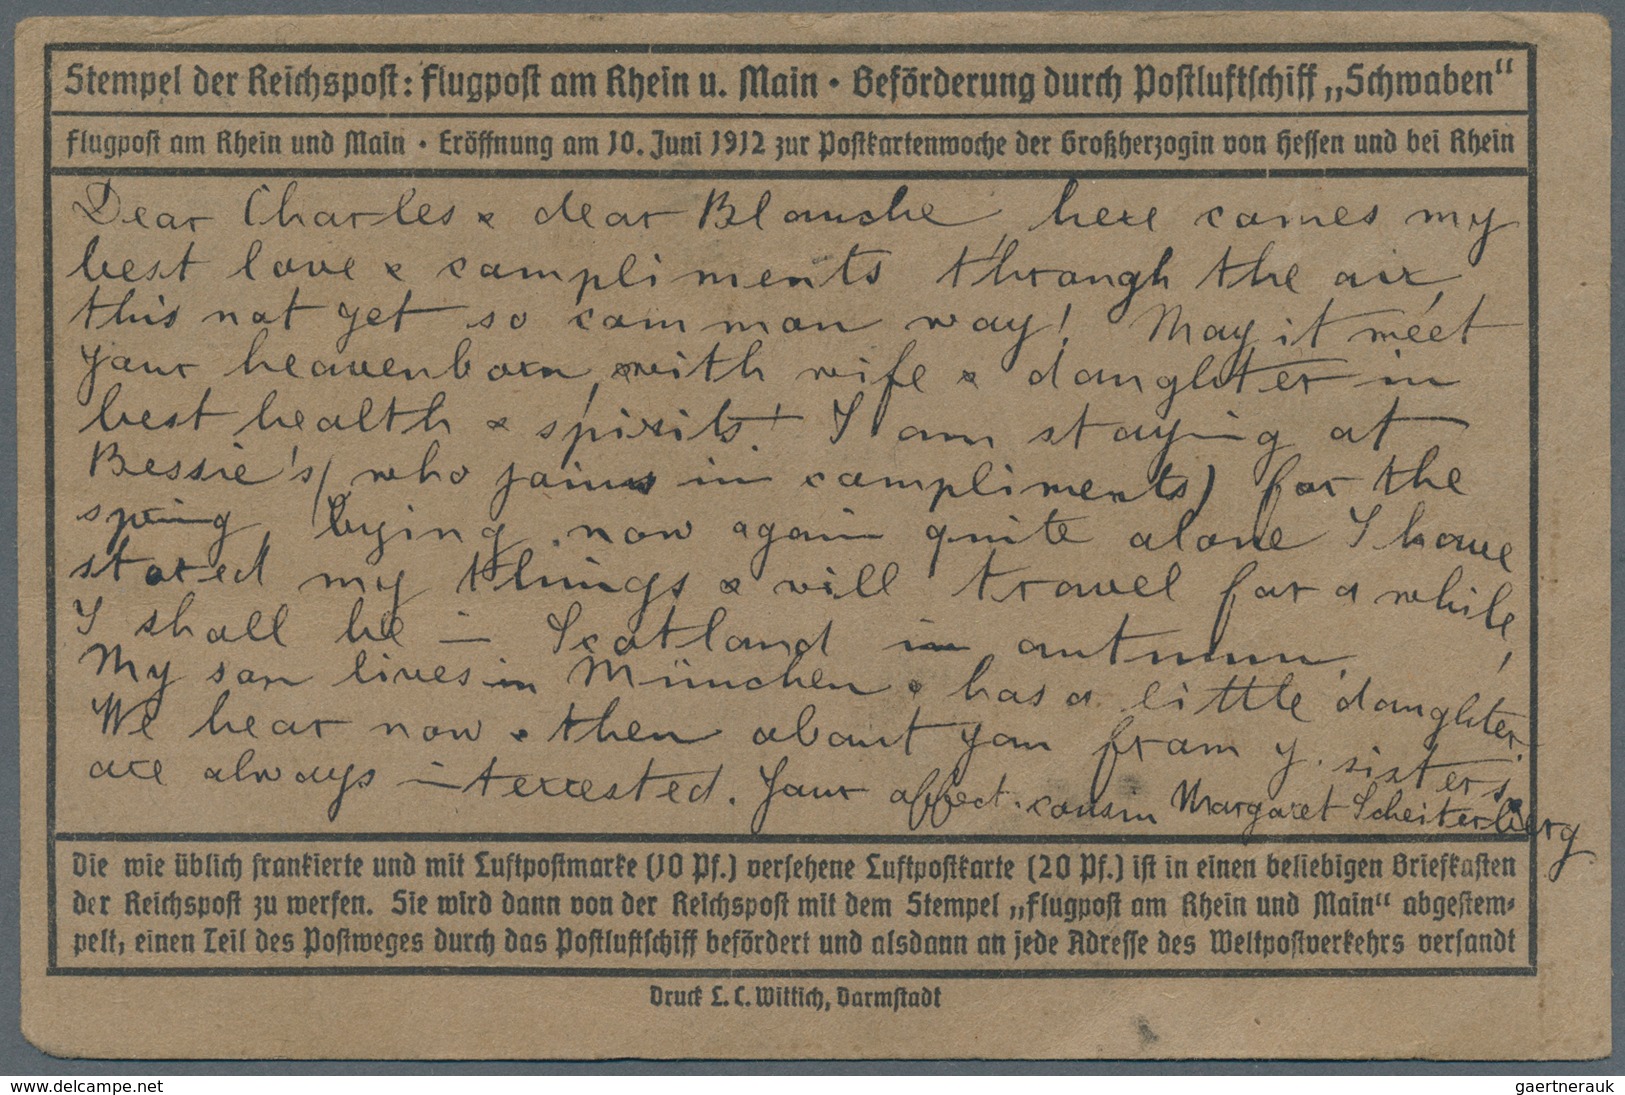 Stempel der Reichspost: Flugpost am Rhein u. Main • Beförderung durch Postluftschiff „Schwaben“
Flugpost am Rhein und Main • Eröffnung am 10. Juni 1912 zur Postkartenwoche der Großherzogin von Hessen und bei Rhein
Dear Charles & dear Blanche, here comes my
best love & compliments through the air,
this not yet so common way! May it meet
your heavenborn, with wife & daughter in
best health & spirits! I am staying at
Bessie's (who joins in compliments) for the
spring, now again quite alone I have
stored my things & will travel for a while,
I shall be in Scotland in autumn.
My son lives in München & has a little daughter.
We hear now & then about you from y. sisters,
are always interrested. Your affect. cousin Margaret Scheiterberg
Die wie üblich frankierte und mit Luftpostmarke (10 Pf.) versehene Luftpostkarte (20 Pf.) ist in einen beliebigen Briefkasten
der Reichspost zu werfen. Sie wird dann von der Reichspost mit dem Stempel „Flugpost am Rhein und Main“ abgestem-
pelt, einen Teil des Postweges durch das Postluftschiff befördert und alsdann an jede Adresse des Weltpostverkehrs versandt
Druck L. C. Wittich, Darmstadt
www.delcampe.net
gaertnerauk